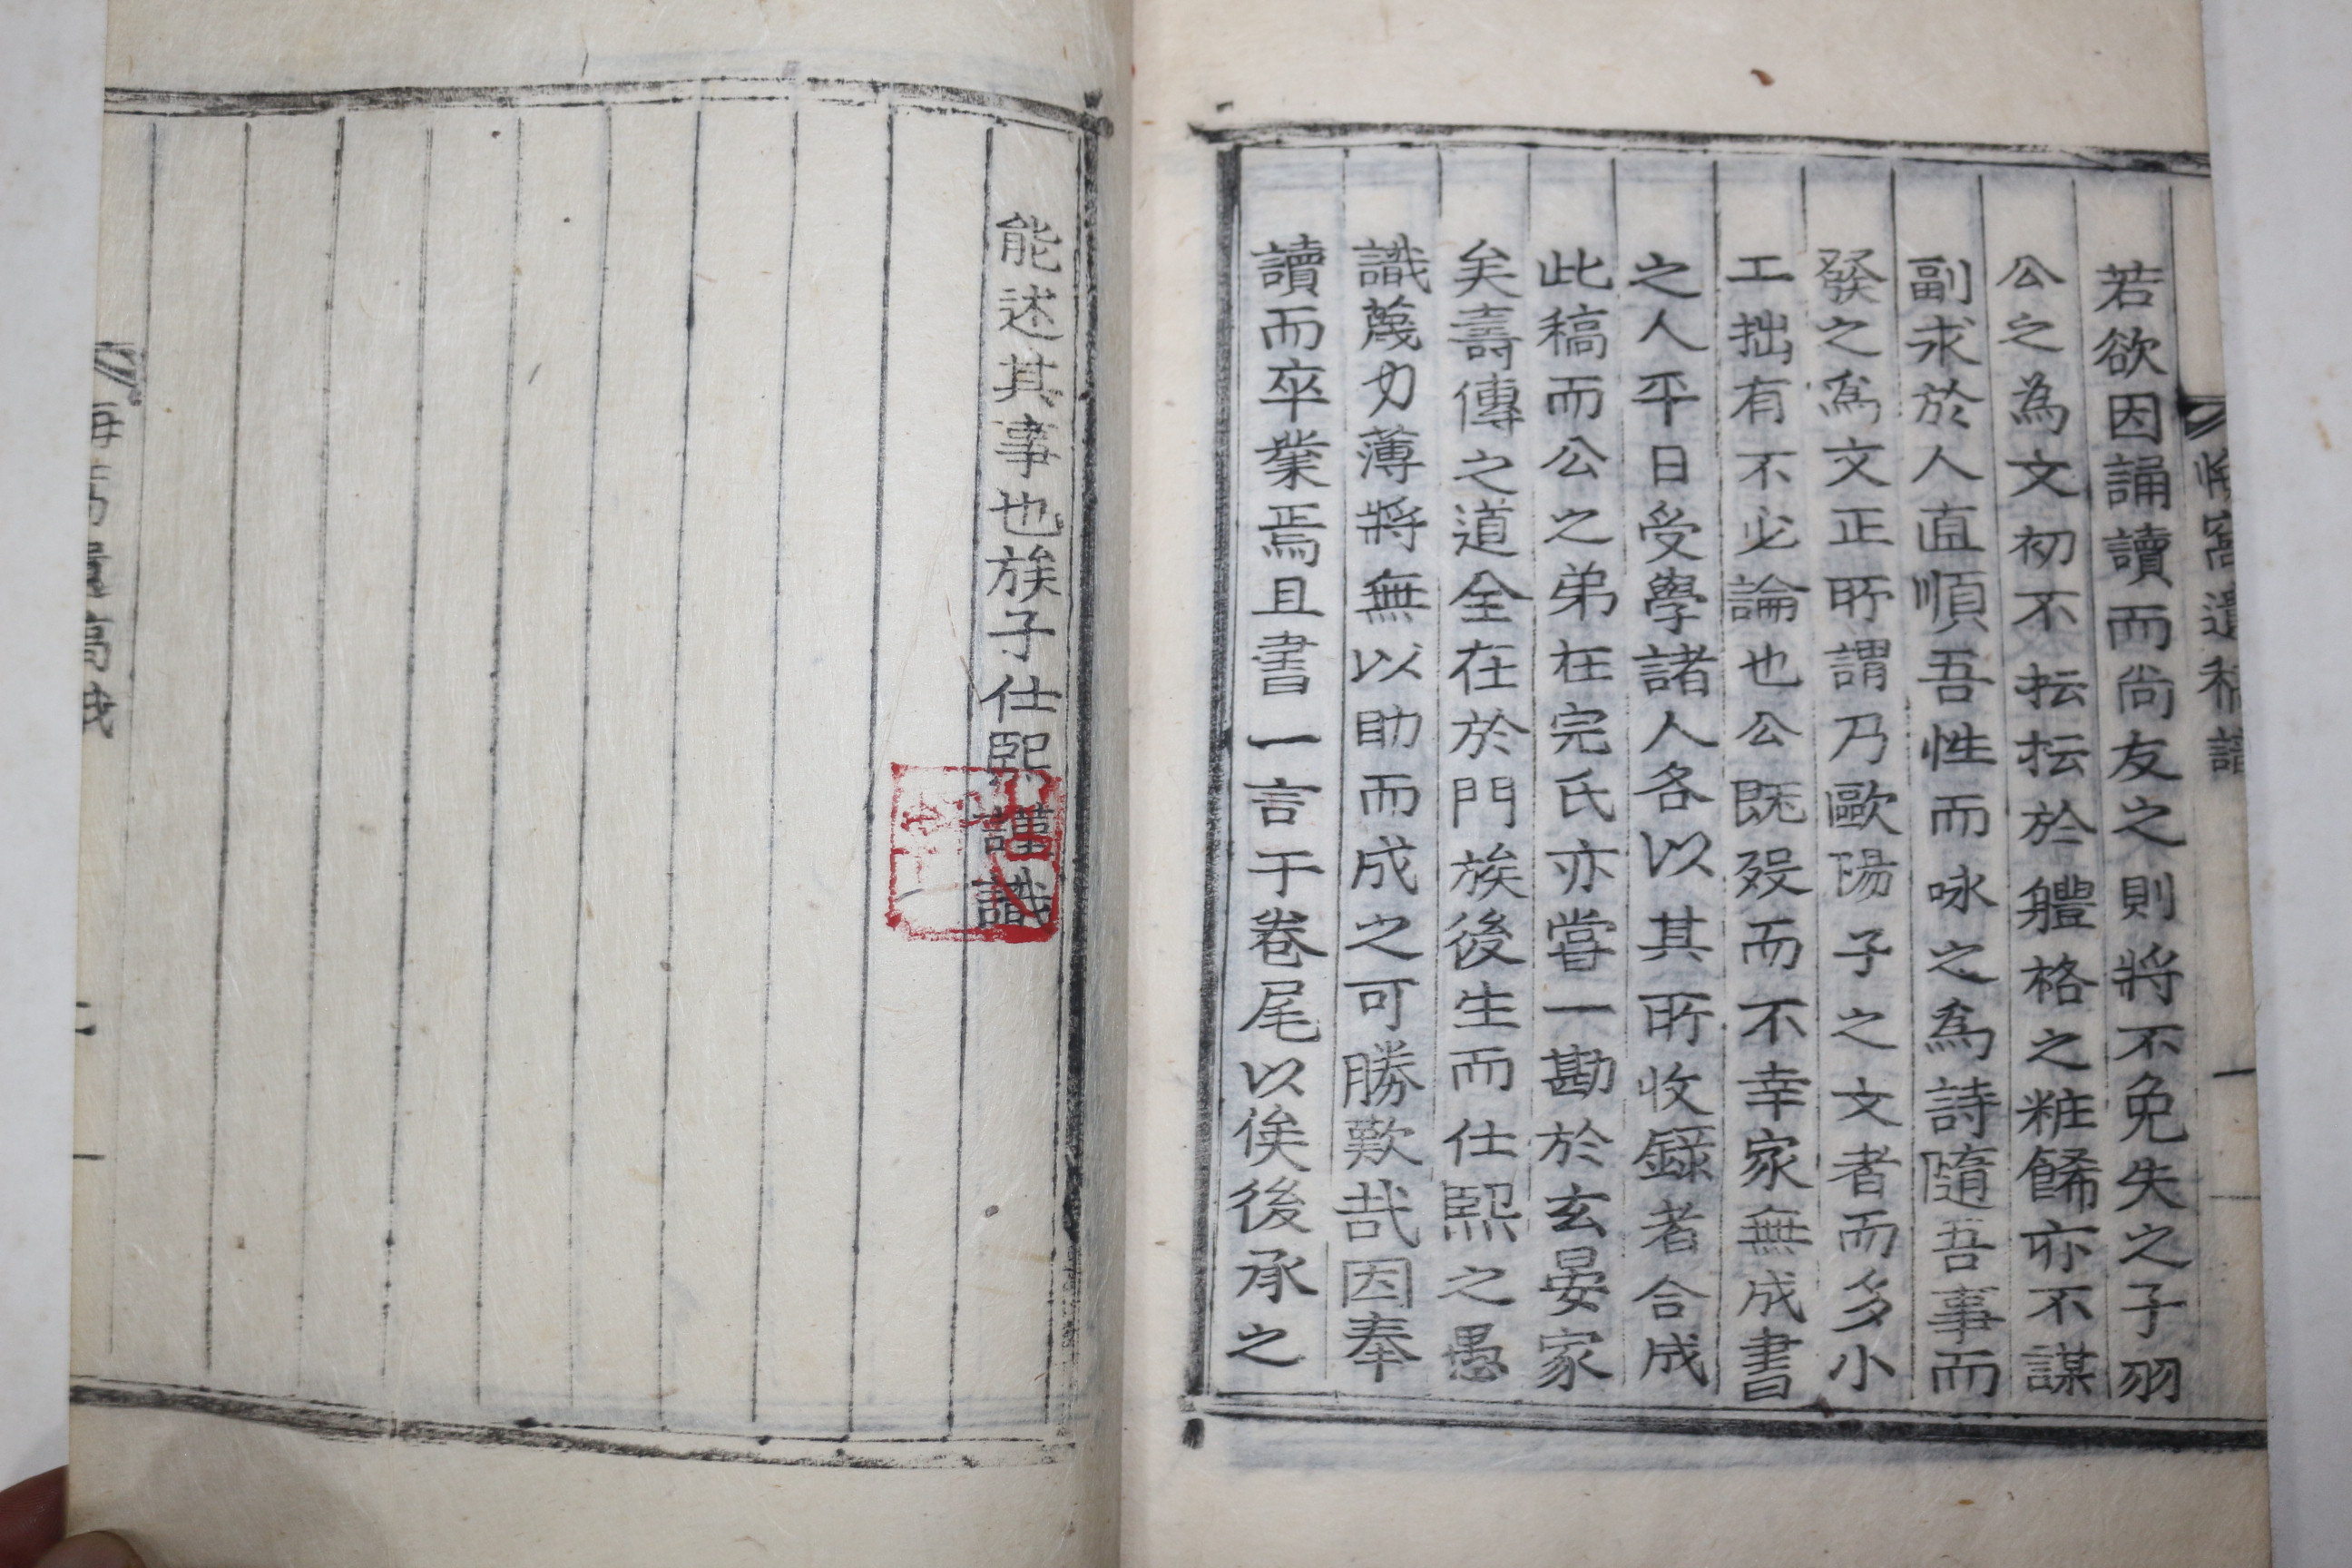 若欲因誦讀而尙友之則將不免失之子羽
公之為文初不抎抎於軆格之粧餙亦不謀
副求於人直順吾性而咏之爲詩隨吾事而
發之爲文正所謂乃歐陽子之文者而多小
工拙有不必論也公既歿而不幸家無成書
之人平日受學諸人各以其所收錄者合成
此稿而公之弟在完氏亦嘗一勘於玄晏家
矣壽傳之道全在於門族後生而仕熙之愚
識蔑力薄將無以助而成之可勝歎哉因奉
讀而卒業焉且書一言于卷尾以俟後承之
能述其事也族子仕熙謹識